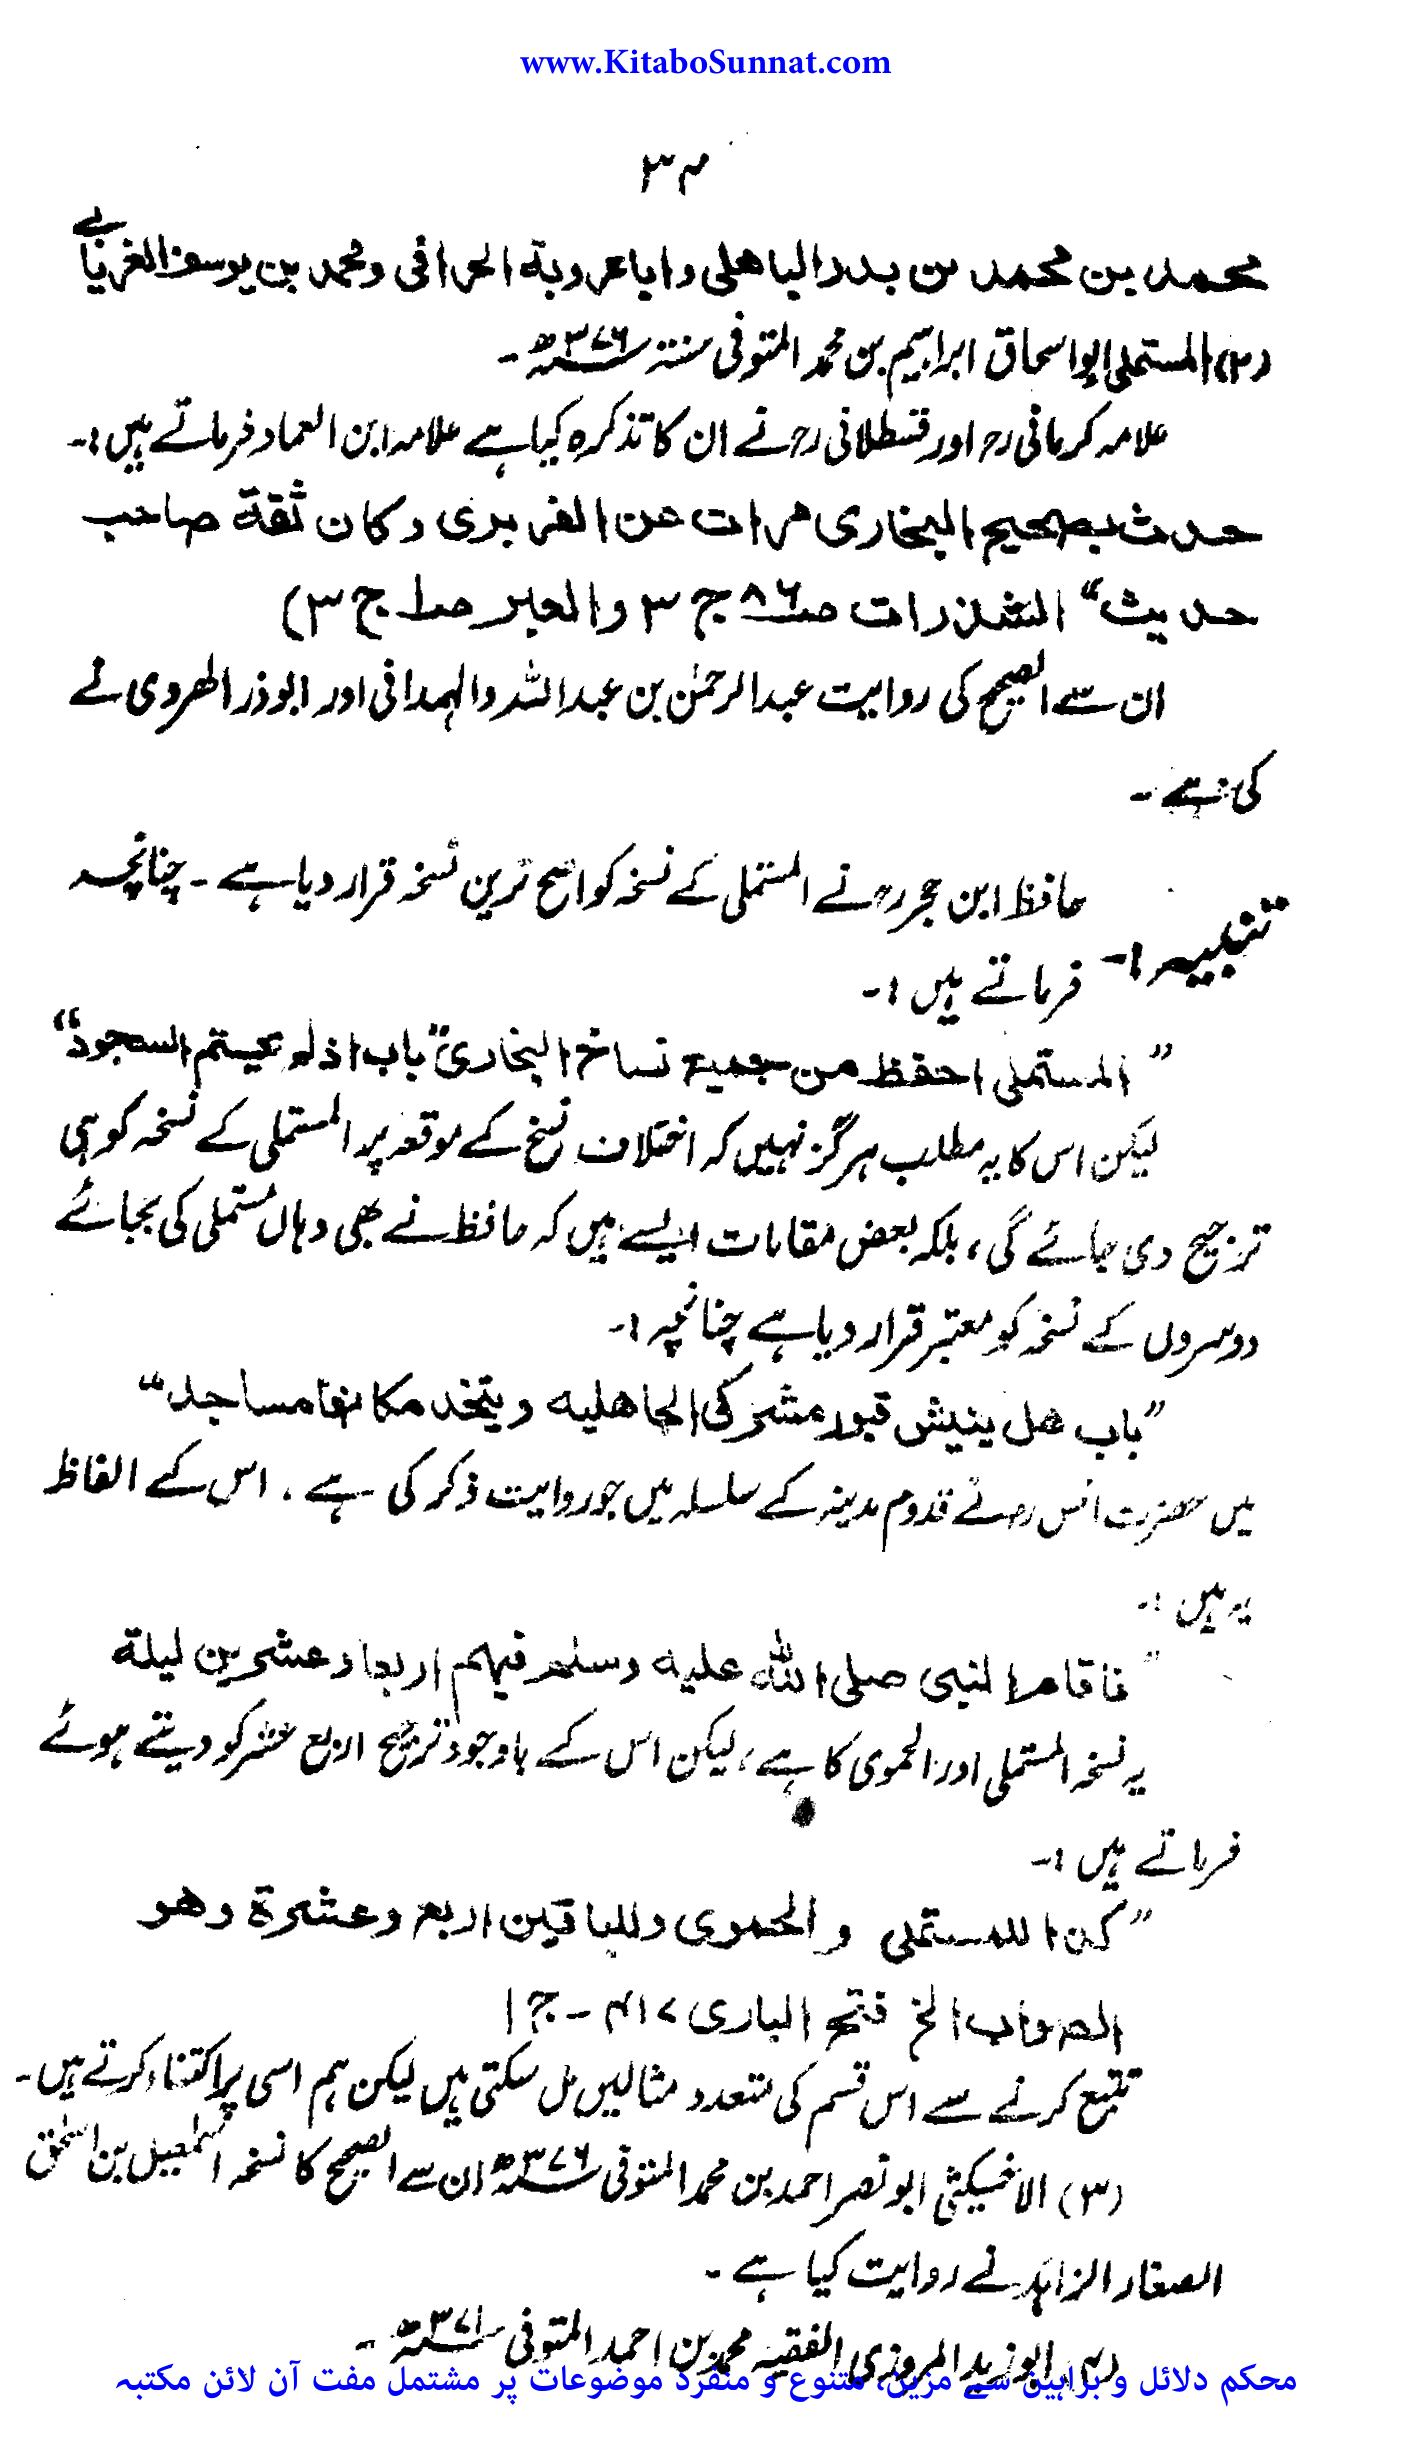 www.KitaboSunnat.com
۳۴
محمد بن محمد بن بدر الباهلی وابا عروبة الحرانی ومحمد بن یوسف الفریابی
(۲) المستملی ابو اسحاق ابراہیم بن محمد المتوفی سنۃ ۳۷۶ھ ۔
علامہ کرمانی رح اور قسطلانی رح نے ان کا تذکرہ کیا ہے علامہ ابن العماد فرماتے ہیں :۔
حدث بصحیح البخاری مرات عن الفربری وکان ثقة صاحب
حدیث“ الشذرات ص۸۶ ج ۳ والعبر ص۱ ج ۳)
ان سے الصحیح کی روایت عبد الرحمٰن بن عبد اللہ والہمدانی اور ابوذر الھروی نے
کی ہے ۔
حافظ ابن حجر رح نے المستملی کے نسخہ کو اصح ترین نسخہ قرار دیا ہے ۔ چنانچہ
تنبیہ :۔ فرماتے ہیں :۔
” المستملی احفظ من جمیع نساخ البخاری“ باب اذا لم یتم السجود“
لیکن اس کا یہ مطلب ہرگز نہیں کہ اختلاف نسخ کے موقعہ پر المستملی کے نسخہ کو ہی
ترجیح دی جائے گی ، بلکہ بعض مقامات ایسے ہیں کہ حافظ نے بھی وہاں مستملی کی بجائے
دوسروں کے نسخہ کو معتبر قرار دیا ہے چنانچہ :۔
”باب هل ینبش قبور مشرکی الجاهلیه ویتخذ مکانها مساجد“
میں حضرت انس رضنے قدوم مدینہ کے سلسلہ میں جو روایت ذکر کی ہے ۔ اس کے الفاظ
یہ ہیں :۔
” فاقام النبی صلی الله علیه وسلم فیهم اربعا وعشرین لیلة
یہ نسخہ المستملی اور الحموی کا ہے ، لیکن اس کے باوجود ترجیح اربع عشر کو دیتے ہوئے
فرماتے ہیں :۔
” کذا للمستملی والحموی وللباقین اربع وعشرة وهو
الصواب الخ فتح الباری ۴۱۷ - ج ۱
تتبع کرنے سے اس قسم کی متعدد مثالیں مل سکتی ہیں لیکن ہم اسی پر اکتفاء کرتے ہیں ۔
(۳) الاخسیکثی ابو نصر احمد بن محمد المتوفی ۳۷۶ھ ان سے الصحیح کا نسخہ اسمٰعیل بن اسحٰق
الصفار الزاہد نے روایت کیا ہے ۔
(۴) ابو زید المروزی الفقیہ محمد بن احمد المتوفی ۳۷۱ھ ۔
محکم دلائل و براہین سے مزین، متنوع و منفرد موضوعات پر مشتمل مفت آن لائن مکتبہ